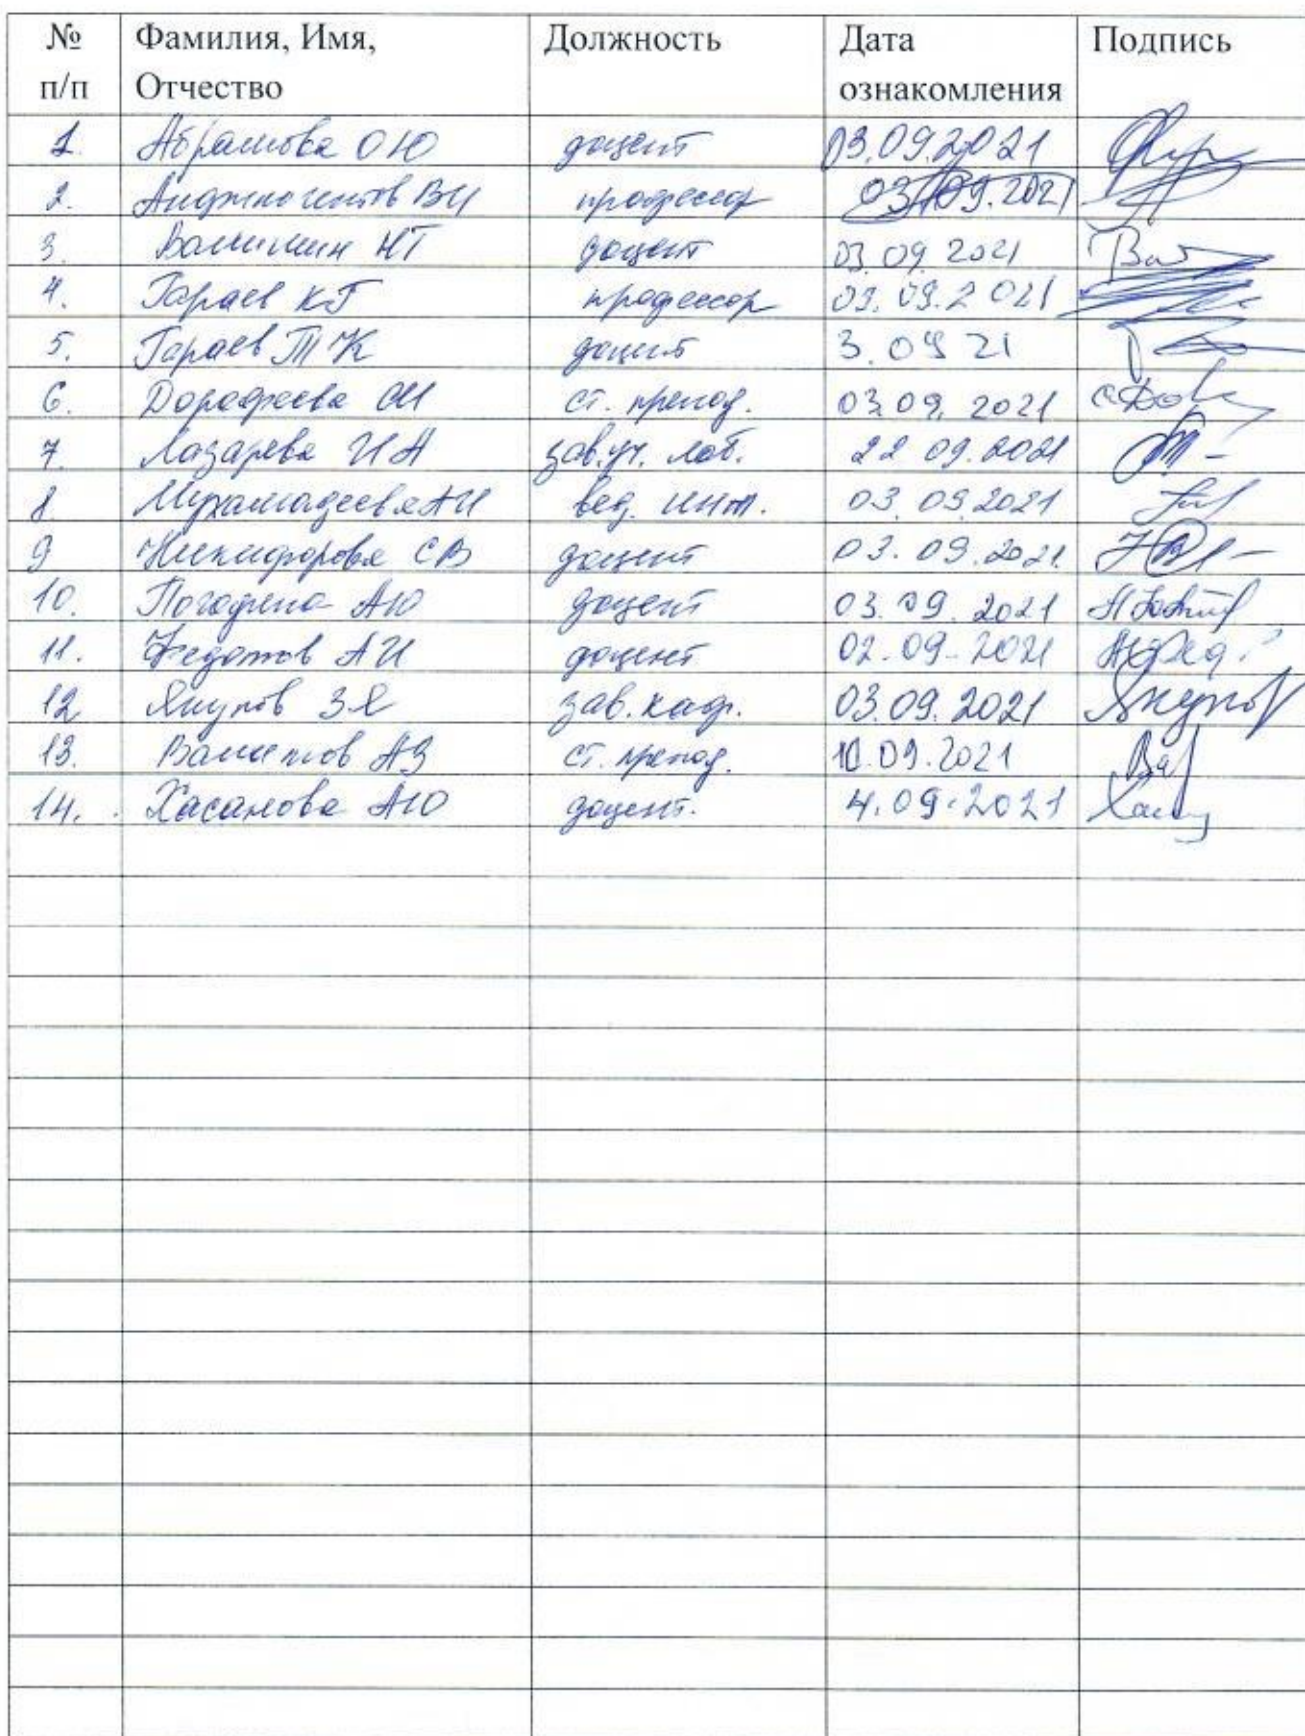 № п/п Фамилия, Имя, Отчество Должность Дата ознакомления Подпись
1. Абрамова О Ю доцент 03.09.2021
2. ВИ профессор 03.09.2021
3. НТ доцент 03.09 2021
4. Гараев КГ профессор 03.09.2021
5. Гараев Т К доцент 3.09 21
6. Дорофеева СИ ст. препод. 03.09. 2021
7. Лазарева И А зав.уч. лаб. 22 09.2021
8 Мухамадеева АИ вед. инж. 03.09.2021
9 Никифорова СВ доцент 03.09.2021
10. Погодина АЮ доцент 03.09.2021
11. Федотов АИ доцент 02.09-2021
12 Якупов ЗЯ зав. каф. 03.09.2021 Якупов
13. АЗ ст. препод. 10.09.2021
14. Хасанова АЮ доцент. 4.09.2021